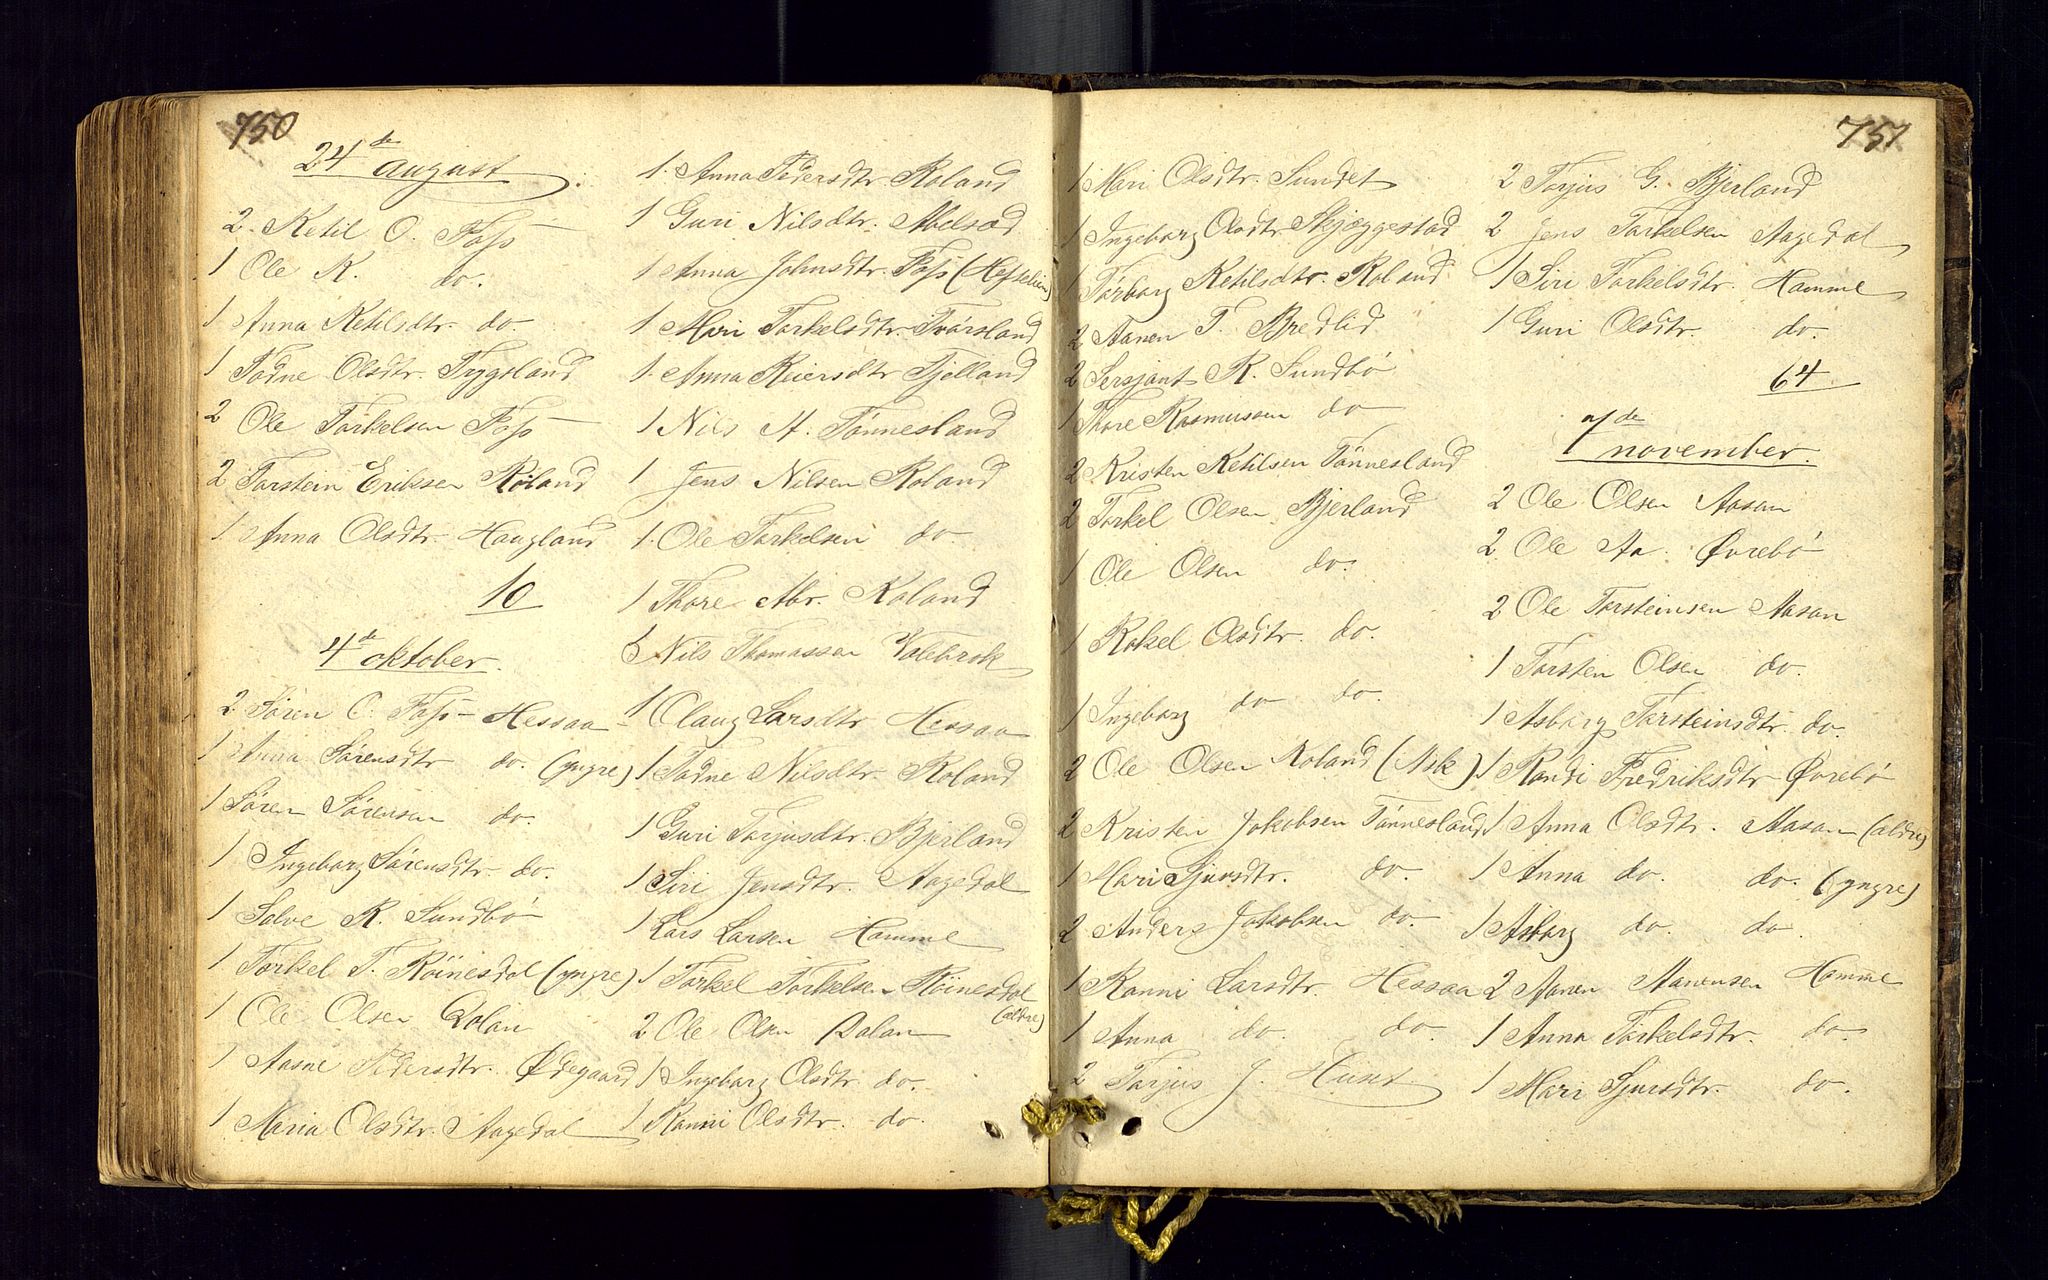 750
24de august
2 Ketil O. Foss
1 Ole K. do.
1 Anna Ketilsdtr. do.
1 Todne Olsdtr. Trygsland
2 Ole Torkelsen Foss
2 Torstein Eriksen Röland
1 Anna Olsdtr. Haugland
10
4de oktober.
2 Sören C. Foss - Hessaa
1 Anna Sörensdtr do. (yngre)
1 Sören Sörensen do.
1 Ingeborg Sörensdtr. do.
1 Salve R. Sundbö
1 Torkel T. Röinesdal (yngre)
1 Ole Olsen Dolan
1 Aasne Pedersdtr. Ødegaard
1 Maria Olsdtr. Aagedal
1 Anna Pedersdtr. Roland
1 Guri Nilsdtr. Abelsæd
1 Anna Johnsdtr. Foss
1 Mari Torkelsdtr. Tvórsland
1 Anna Reiersdtr Fjelland
1 Nils A. Tönnesland
1 Jens Nilsen Roland
1 Ole Torkelsen do.
1 Thore Abr. Roland
Nils Thomassen
1 Olaug Larsdtr Hessaa
1 Todne Nilsdtr. Roland
1 Guri Torjusdtr. Bjerland
1 Siri Jensdtr. Aagedal
1 Lars Larsen Homme
1 Torkel Torkelsen Röinesdal
(aldre)
2 Ole Olsen Dalan
1 Ingeborg Olsdtr. do.
1 Ranni Olsdtr. do.
751
1 Mari Olsdtr. Sundet
1 Ingeborg Olsdtr Skjæggestad
1 Torborg Ketilsdtr. Roland
2 Aanen T. Bredlid
2 Sersjant R. Sundbö
1 Thore Rasmussen do
2 Kristen Ketilsen Tönnesland
2 Torkel Olsen Bjerland
1 Ole Olsen do.
1 Rakel Olsdtr. do.
1 Ingeborg do do.
2 Ole Olsen Roland (Ask)
2 Kristen Jakobsen Tönnesland
1 Mari Sjursdtr. do.
2 Anders Jakobsen do.
1 Ranni Larsdtr. Hessaa
1 Anna do. do.
2 Torjus J. Huset
2 Torjus G. Bjerland
2 Jens Torkelsen Aagedal
1 Siri Torkelsdtr. Homme
1 Guri Olsdtr. do.
64
7de november.
2 Ole Olsen Aasan
2 Ole Aa. Øvrebö
2 Ole Torsteinsen Aasan
1 Torsten Olsen do.
1 Asborg Torsteinsdtr. do.
1 Randi Fredriksdtr Øvrebö
1 Anna Olsdtr. Aasan (aldre)
1 Anna do. do. (yngre)
1 Asborg do. do.
2 Aanen Aanensen Homme
1 Anna Torkelsdtr. do.
1 Mari Sjursdtr. do.